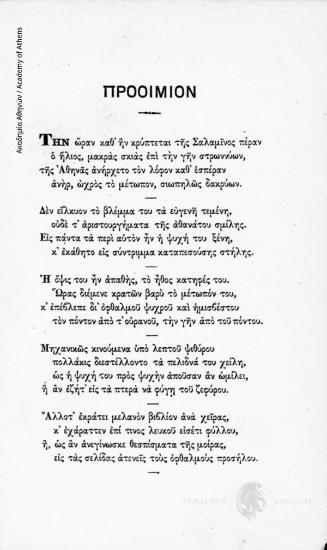 Ακαδημία Αθηνών / Academy of Athens
ΠΡΟΟΙΜΙΟΝ
ΤΗΝ ὥραν καθ' ἣν κρύπτεται τῆς Σαλαμῖνος πέραν
ὁ ἥλιος, μακρὰς σκιὰς ἐπὶ τὴν γῆν στρωννύων,
τῆς Ἀθηνᾶς ἀνήρχετο τὸν λόφον καθ' ἑσπέραν
ἀνήρ, ὠχρὸς τὸ μέτωπον, σιωπηλῶς δακρύων.
Δὲν εἵλκυον τὸ βλέμμα του τὰ εὐγενῆ τεμένη,
οὐδὲ τ' ἀριστουργήματα τῆς ἀθανάτου σμίλης.
Εἰς πάντα τὰ περὶ αὐτὸν ἦν ἡ ψυχή του ξένη,
κ' ἐκάθητο εἰς σύντριμμα καταπεσούσης στήλης.
Ἡ ὄψις του ἦν ἀπαθής, τὸ ἦθος κατηφές του.
Ὥρας διέμενε κρατῶν βαρὺ τὸ μέτωπόν του,
κ' ἐπέβλεπε δι' ὀφθαλμοῦ ψυχροῦ καὶ ἡμισβέστου
τὸν πόντον ἀπὸ τ' οὐρανοῦ, τὴν γῆν ἀπὸ τοῦ πόντου.
Μηχανικῶς κινούμενα ὑπὸ λεπτοῦ ψιθύρου
πολλάκις διεστέλλοντο τὰ πελιδνά του χείλη,
ὡς ἡ ψυχή του πρὸς ψυχὴν ἀποῦσαν ἂν ὡμίλει,
ἢ ἂν ἐζήτ' εἰς τὰ πτερὰ νὰ φύγῃ τοῦ ζεφύρου.
Ἄλλοτ' ἐκράτει μελανὸν βιβλίον ἀνὰ χεῖρας,
κ' ἐχάραττεν ἐπί τινος λευκοῦ εἰσέτι φύλλου,
ἤ, ὡς ἂν ἀνεγίνωσκε θεσπίσματα τῆς μοίρας,
εἰς τὰς σελίδας ἀτενεῖς τοὺς ὀφθαλμοὺς προσήλου.